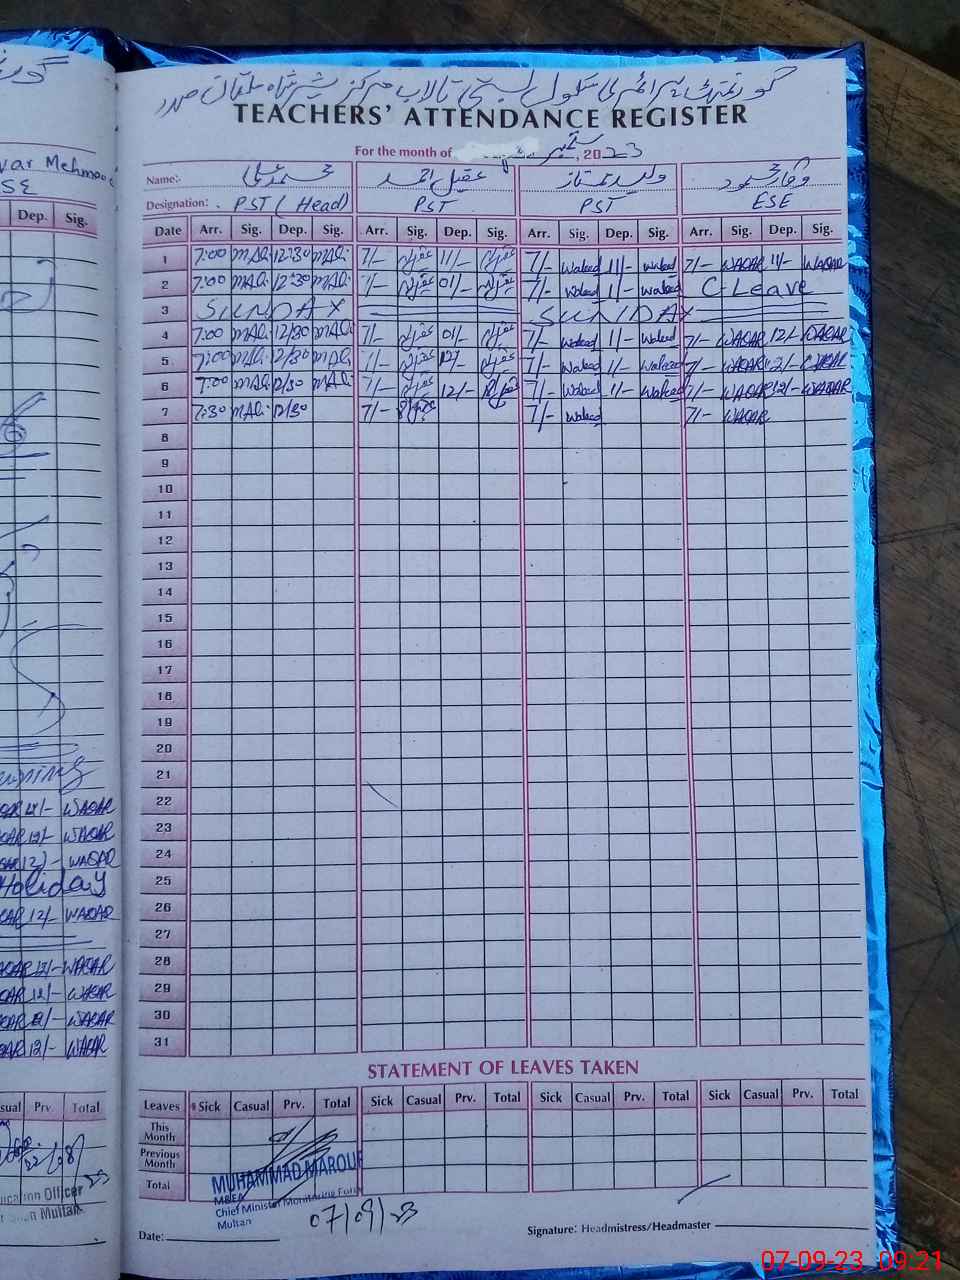 گورنمنٹ پرائمری سکول بستی تالاب مرکز شیر شاہ ملتان صدر
TEACHERS' ATTENDANCE REGISTER
For the month of ستمبر, 2023
Name:- محمد علی عقیل احمد ولید ممتاز وقار محمود
Designation: PST (Head) PST PST ESE
Date Arr. Sig. Dep. Sig. Arr. Sig. Dep. Sig. Arr. Sig. Dep. Sig. Arr. Sig. Dep. Sig.
1 7:00 MAli 12:30 MAli 7/- عقیل 11/- عقیل 7/- Waleed 11/- Waleed 7/- WAQAR 11/- WAQAR
2 7:00 MAli 12:30 MAli 7/- عقیل 01/- عقیل 7/- Waleed 1/- Waleed C-Leave
3 SUNDAY SUNDAY
4 7:00 MAli 12/30 MAli 7/- عقیل 01/- عقیل 7/- Waleed 1/- Waleed 7/- WAQAR 12/- WAQAR
5 7:00 MAli 12/30 MAli 7/- عقیل 12/- عقیل 7/- Waleed 1/- Waleed 7/- WAQAR 12/- WAQAR
6 7:00 MAli 12/30 MAli 7/- عقیل 12/- عقیل 7/- Waleed 1/- Waleed 7/- WAQAR 12/- WAQAR
7 7:30 MAli 12/30 7/- عقیل 7/- Waleed 7/- WAQAR
8
9
10
11
12
13
14
15
16
17
18
19
20
21
22
23
24
25
26
27
28
29
30
31
STATEMENT OF LEAVES TAKEN
Leaves Sick Casual Prv. Total Sick Casual Prv. Total Sick Casual Prv. Total Sick Casual Prv. Total
This Month
Previous Month
Total
MUHAMMAD MAROUF
MEA
Chief Minister Monitoring Force
Multan
07/09/23
Date:
Signature: Headmistress/Headmaster
Mehmood
SE
Dep. Sig.
12/- WAQAR
12/- WAQAR
12/- WAQAR
Holiday
12/- WAQAR
12/- WAQAR
12/- WAQAR
12/- WAQAR
12/- WAQAR
Prv. Total
Officer
Multan
07-09-23 09:21